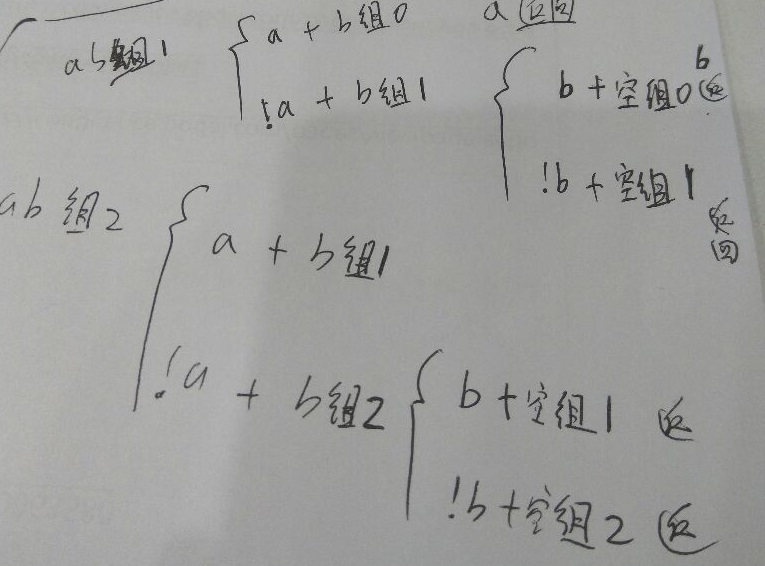 ab组1
a + b组0
a 返回
!a + b组1
b + 空组0
b返
!b + 空组1
返回
ab 组2
a + b组1
!a + b组2
b + 空组1 返
!b + 空组2 返